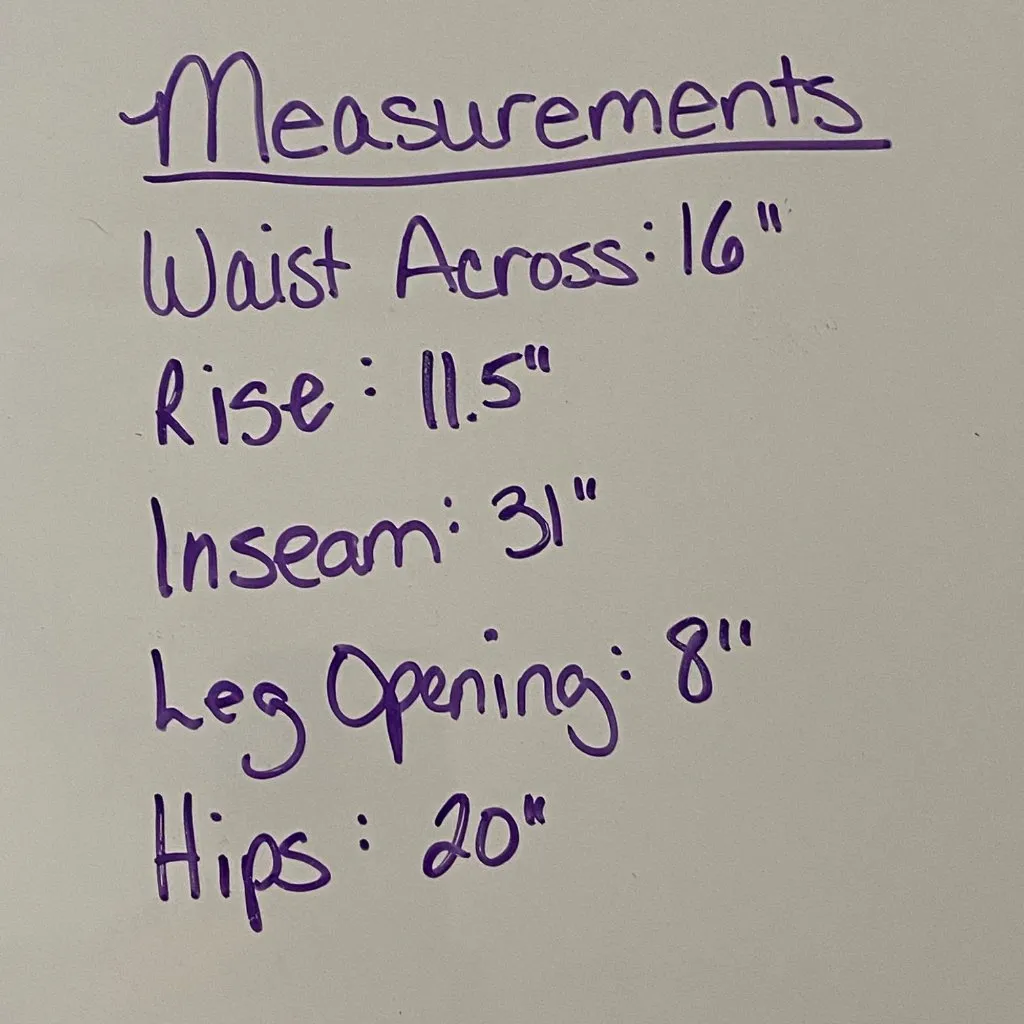 Measurements
Waist Across: 16"
Rise: 11.5"
Inseam: 31"
Leg Opening: 8"
Hips: 20"